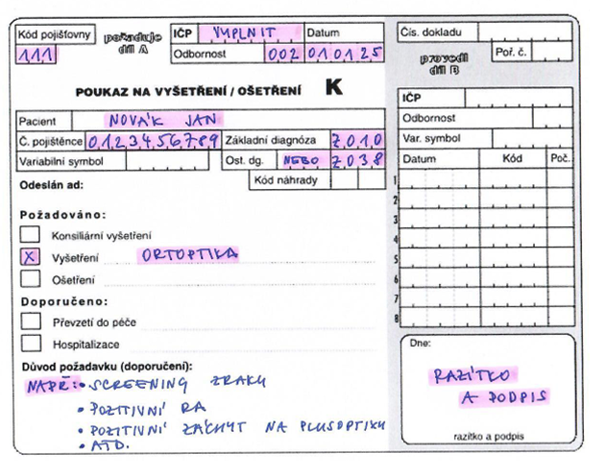 Kód pojišťovny
111
požaduje
díl A
IČP VYPLNIT Datum
Odbornost 002 010125
POUKAZ NA VYŠETŘENÍ / OŠETŘENÍ K
Pacient NOVÁK JAN
Č. pojištěnce 0123456789 Základní diagnóza Z010
Variabilní symbol Ost. dg. NEBO Z038
Odeslán ad: Kód náhrady
Požadováno:
Konsiliární vyšetření
X Vyšetření ORTOPTIKA
Ošetření
Doporučeno:
Převzetí do péče
Hospitalizace
Důvod požadavku (doporučení):
NAPŘ: • SCREENING ZRAKU
• POZITIVNÍ RA
• POZITIVNÍ ZÁCHYT NA PLUSOPTIXU
• ATD.
Čís. dokladu
provedl
díl B
Poř. č.
IČP
Odbornost
Var. symbol
Datum Kód Poč.
1
2
3
4
5
6
7
8
Dne:
RAZÍTKO
A PODPIS
razítko a podpis